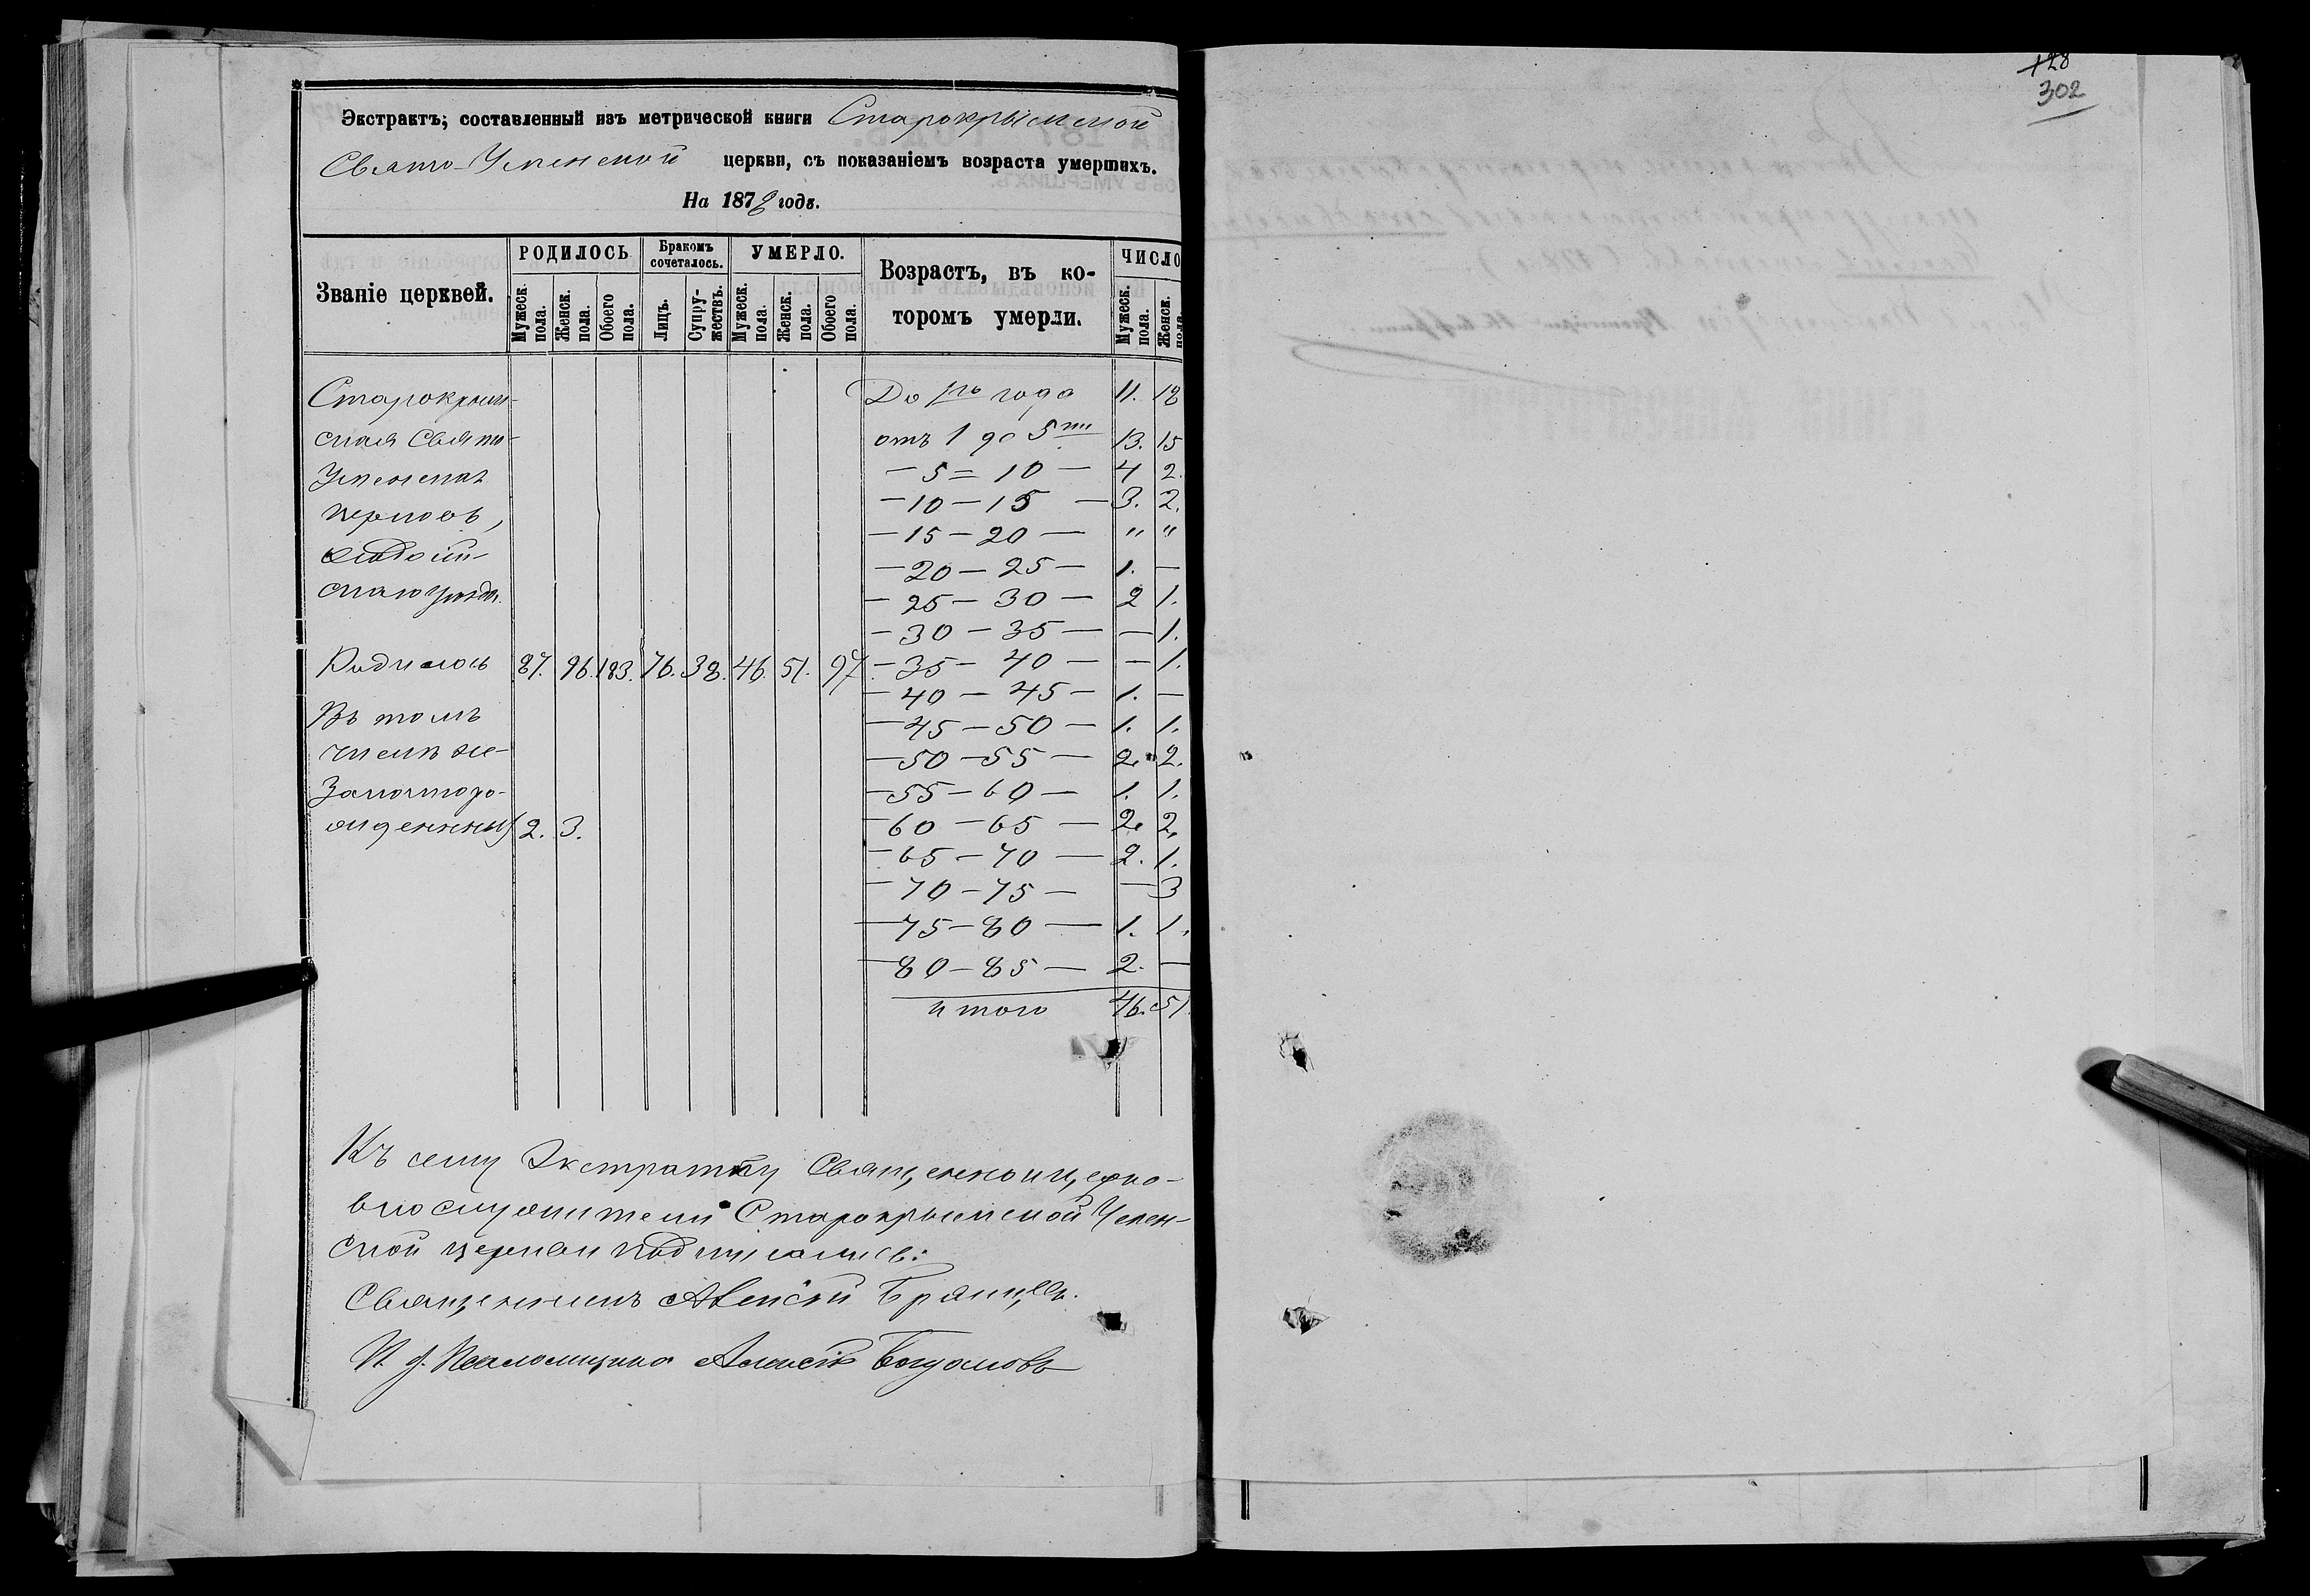 Экстрактъ, составленный изъ метрической книги Старокрымской
Свято-Успенской церкви, съ показаніемъ возраста умершихъ.
На 1878 годъ.
Званіе церквей. РОДИЛОСЬ Бракомъ сочеталось. УМЕРЛО. Возрастъ, въ которомъ умерли. ЧИСЛО
Мужеск. пола. Женск. пола. Обоего пола. Лицъ. Супружествъ. Мужеск. пола. Женск. пола. Обоего пола. Мужеск. пола. Женск. пола.
Старокрым- До 1го года 11. 18
ская Свято- отъ 1 до 5ти 13. 15
Успенская — 5 = 10 — 4 2.
церковь, — 10 — 15 — 3. 2.
— 15 — 20 — " "
Феодосій- — 20 — 25 — 1. —
скаго уѣзда. — 25 — 30 — 2 1.
— 30 — 35 — — 1.
Родилось 87. 96. 183. 76. 38. 46. 51. 97 — 35 — 40 — — 1.
— 40 — 45 — 1. —
Въ томъ — 45 — 50 — 1. 1.
числѣ не- — 50 — 55 — 2. 2.
законноро- — 55 — 60 — 1. 1.
жденныхъ 2. 3. — 60 — 65 — 2. 2.
— 65 — 70 — 2. 1.
— 70 — 75 — — 3
— 75 — 80 — 1. 1.
— 80 — 85 — 2. —
итого 46. 51.
Къ сему Экстракту Священно и церко-
вно служители Старокрымской Успен-
ской церкви подписались:
Священникъ Алексѣй
И. д. Псаломщика Алексѣй
128
302